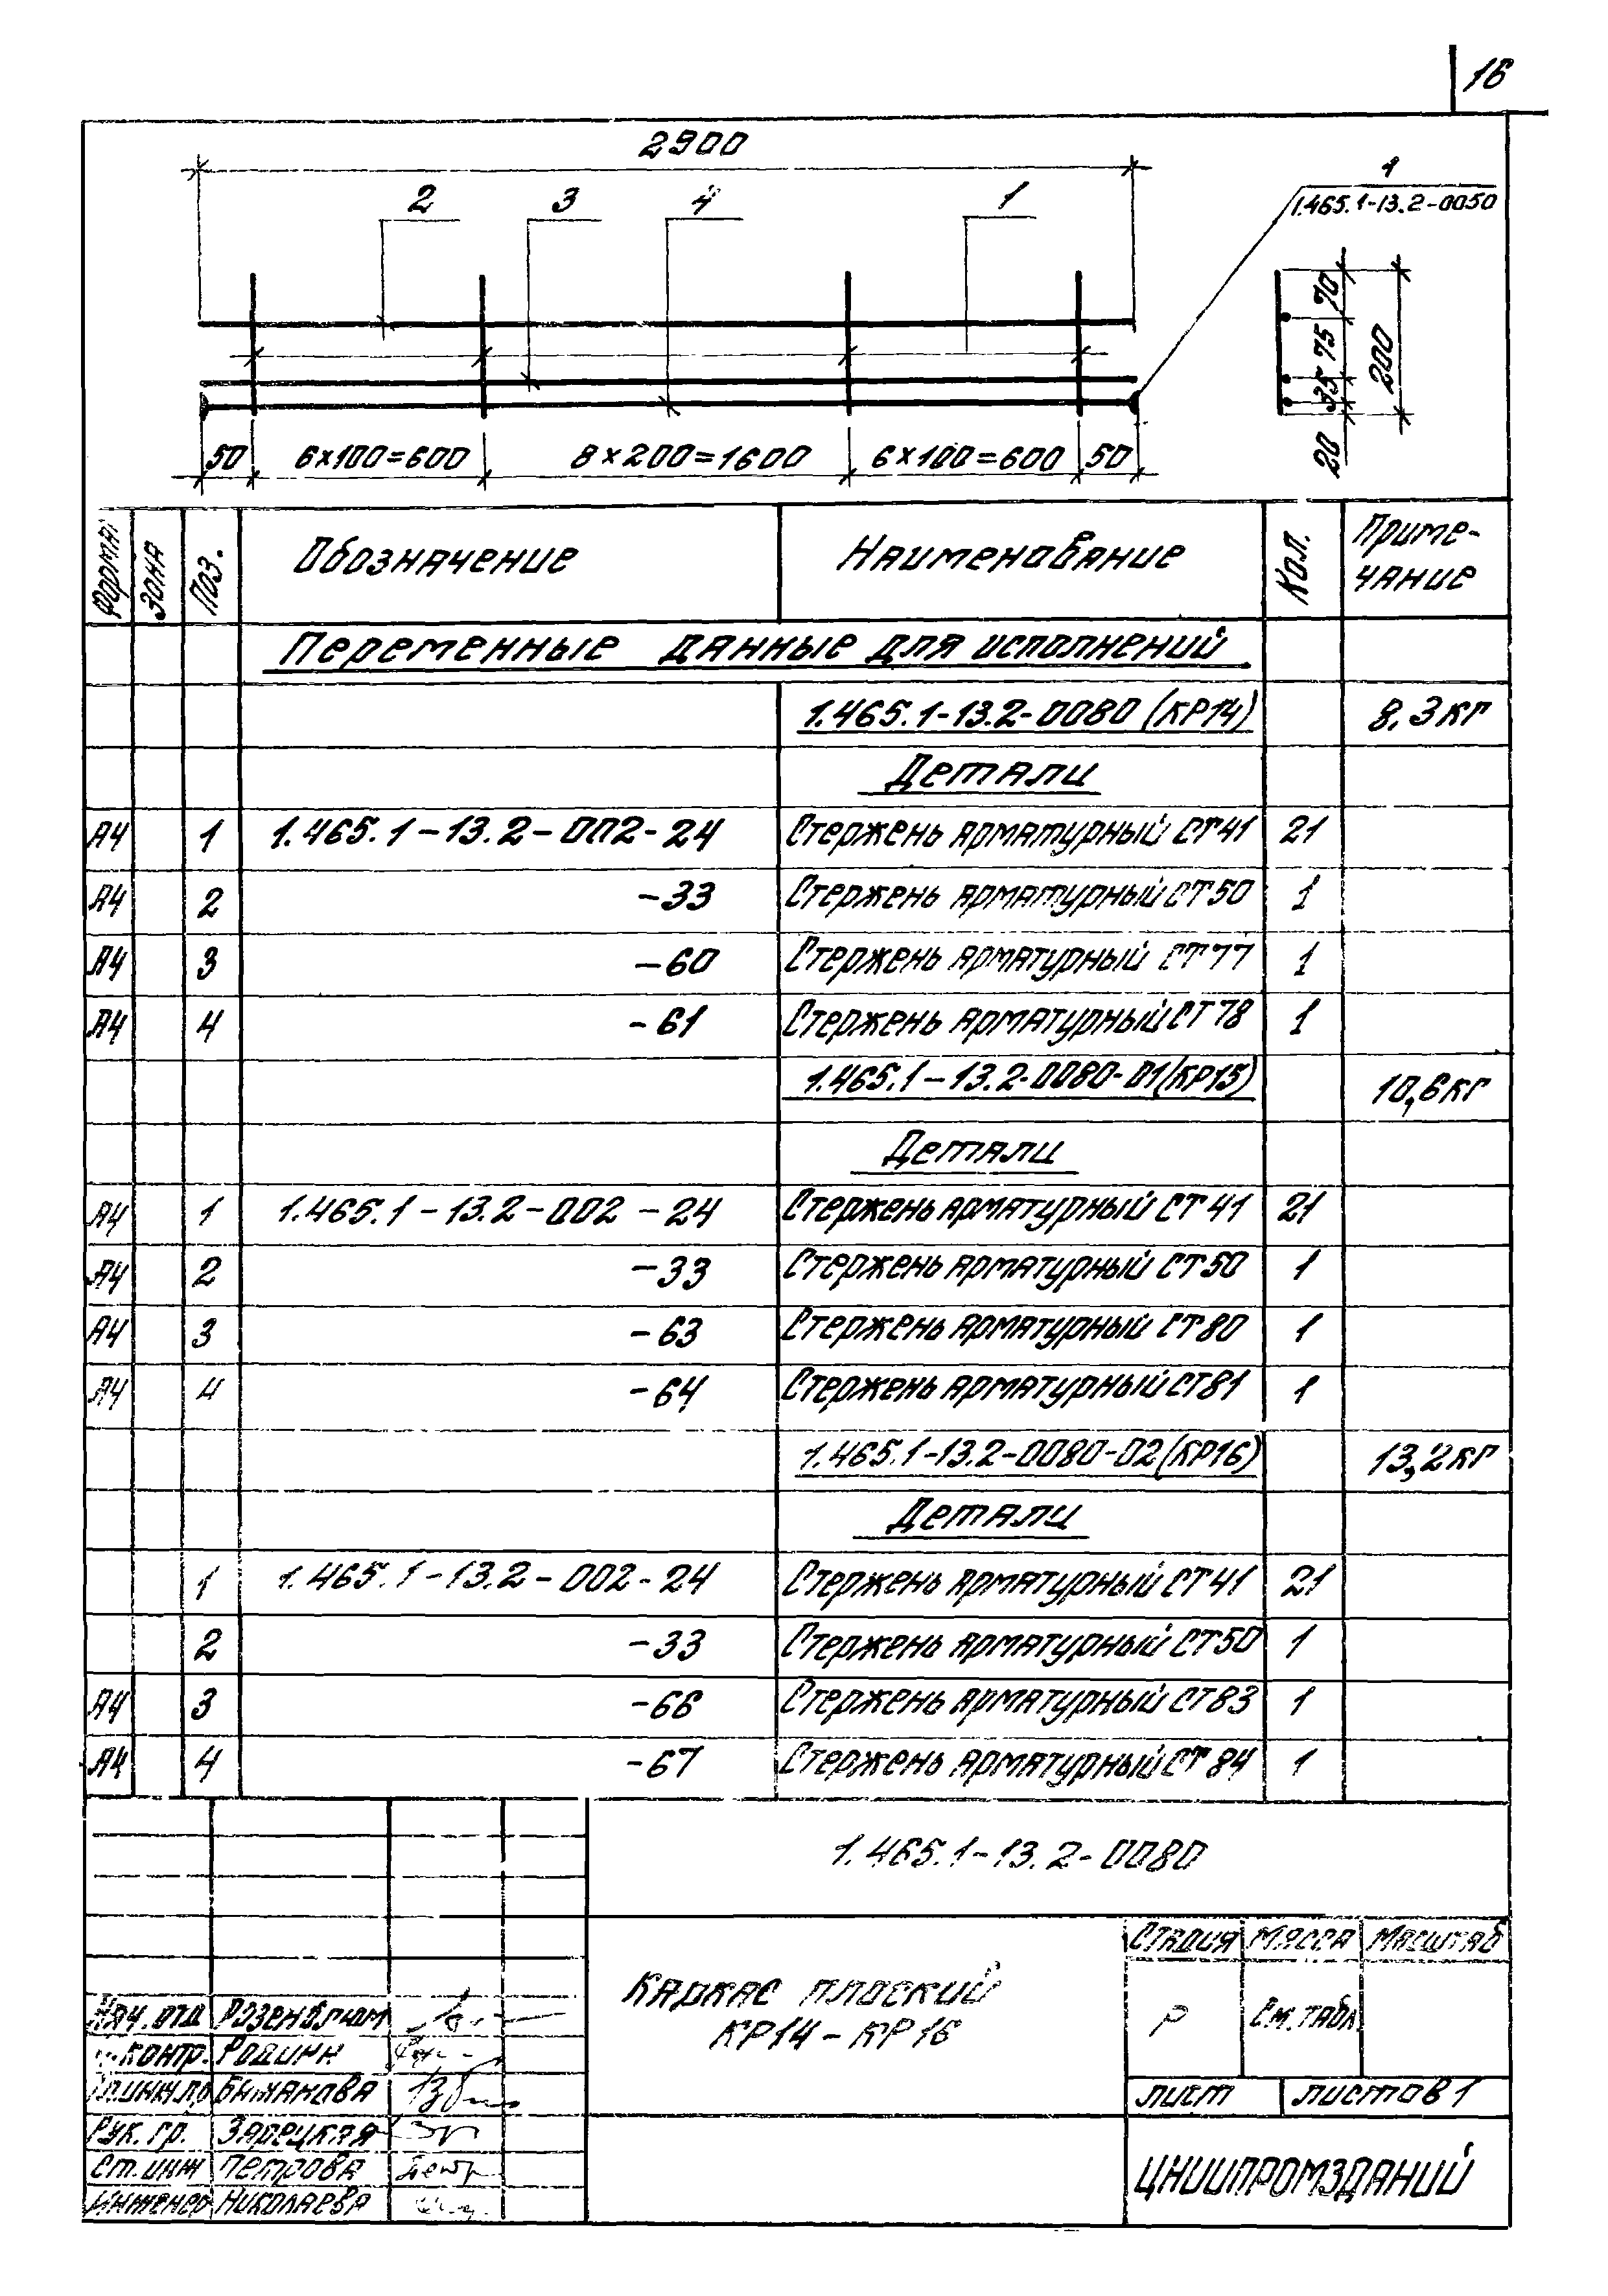 16
2900
2 3 4 1
1
1.465.1-13.2-0050
70
75
35
20
200
50 6×100=600 8×200=1600 6×100=600 50
Формат Зона Поз. Обозначение Наименование Кол. Приме-
чание
Переменные данные для исполнений
1.465.1-13.2-0080 (КР14) 8.3кг
Детали
А4 1 1.465.1-13.2-002-24 Стержень арматурный СТ41 21
А4 2 -33 Стержень арматурный СТ50 1
А4 3 -60 Стержень арматурный СТ77 1
А4 4 -61 Стержень арматурный СТ78 1
1.465.1-13.2-0080-01(КР15) 10,6кг
Детали
А4 1 1.465.1-13.2-002-24 Стержень арматурный СТ41 21
А4 2 -33 Стержень арматурный СТ50 1
А4 3 -63 Стержень арматурный СТ80 1
А4 4 -64 Стержень арматурный СТ81 1
1.465.1-13.2-0080-02(КР16) 13,2кг
Детали
1 1.465.1-13.2-002-24 Стержень арматурный СТ41 21
2 -33 Стержень арматурный СТ50 1
А4 3 -66 Стержень арматурный СТ83 1
А4 4 -67 Стержень арматурный СТ84 1
1.465.1-13.2-0080
Каркас плоский
КР14-КР16
Стадия Масса Масштаб
Р См.табл.
Лист Листов 1
ЦНИИПРОМЗДАНИЙ
Нач.отд Розенблюм
контр. Родина
Гл.инж.пр
Рук.гр. Зарецкая
Ст.инж Петрова
Инженер Николаева